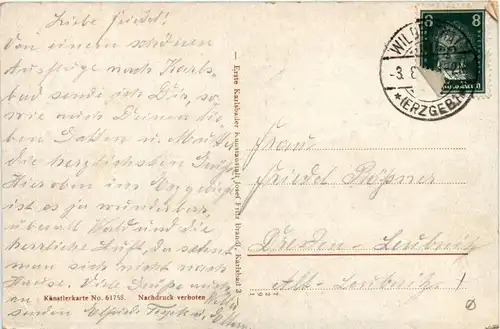 Liebe Friedel!
Von einem schönen
Ausfluge nach Karls-
bad sende ich Dir, so-
wie auch Deinen lie-
ben Gatten u. Mutter
die herzlichsten Grüße
Hier oben im Erzgebirge
ist es ja wunderbar,
überall Wald und die
herrliche Luft, da sehnt
man sich nicht nach
Hause. Viele Grüße auch
an
senden Elfriede
Künstlerkarte No. 61758. Nachdruck verboten
Erste Karlsbader Kunstanstalt Josef Fritz Brandl, Karlsbad
1931
8 8
WILD
-3. 8
*(ERZGEB)
Frau
Friedel
Dresden-Leubnitz
Alt-Leubnitz 1